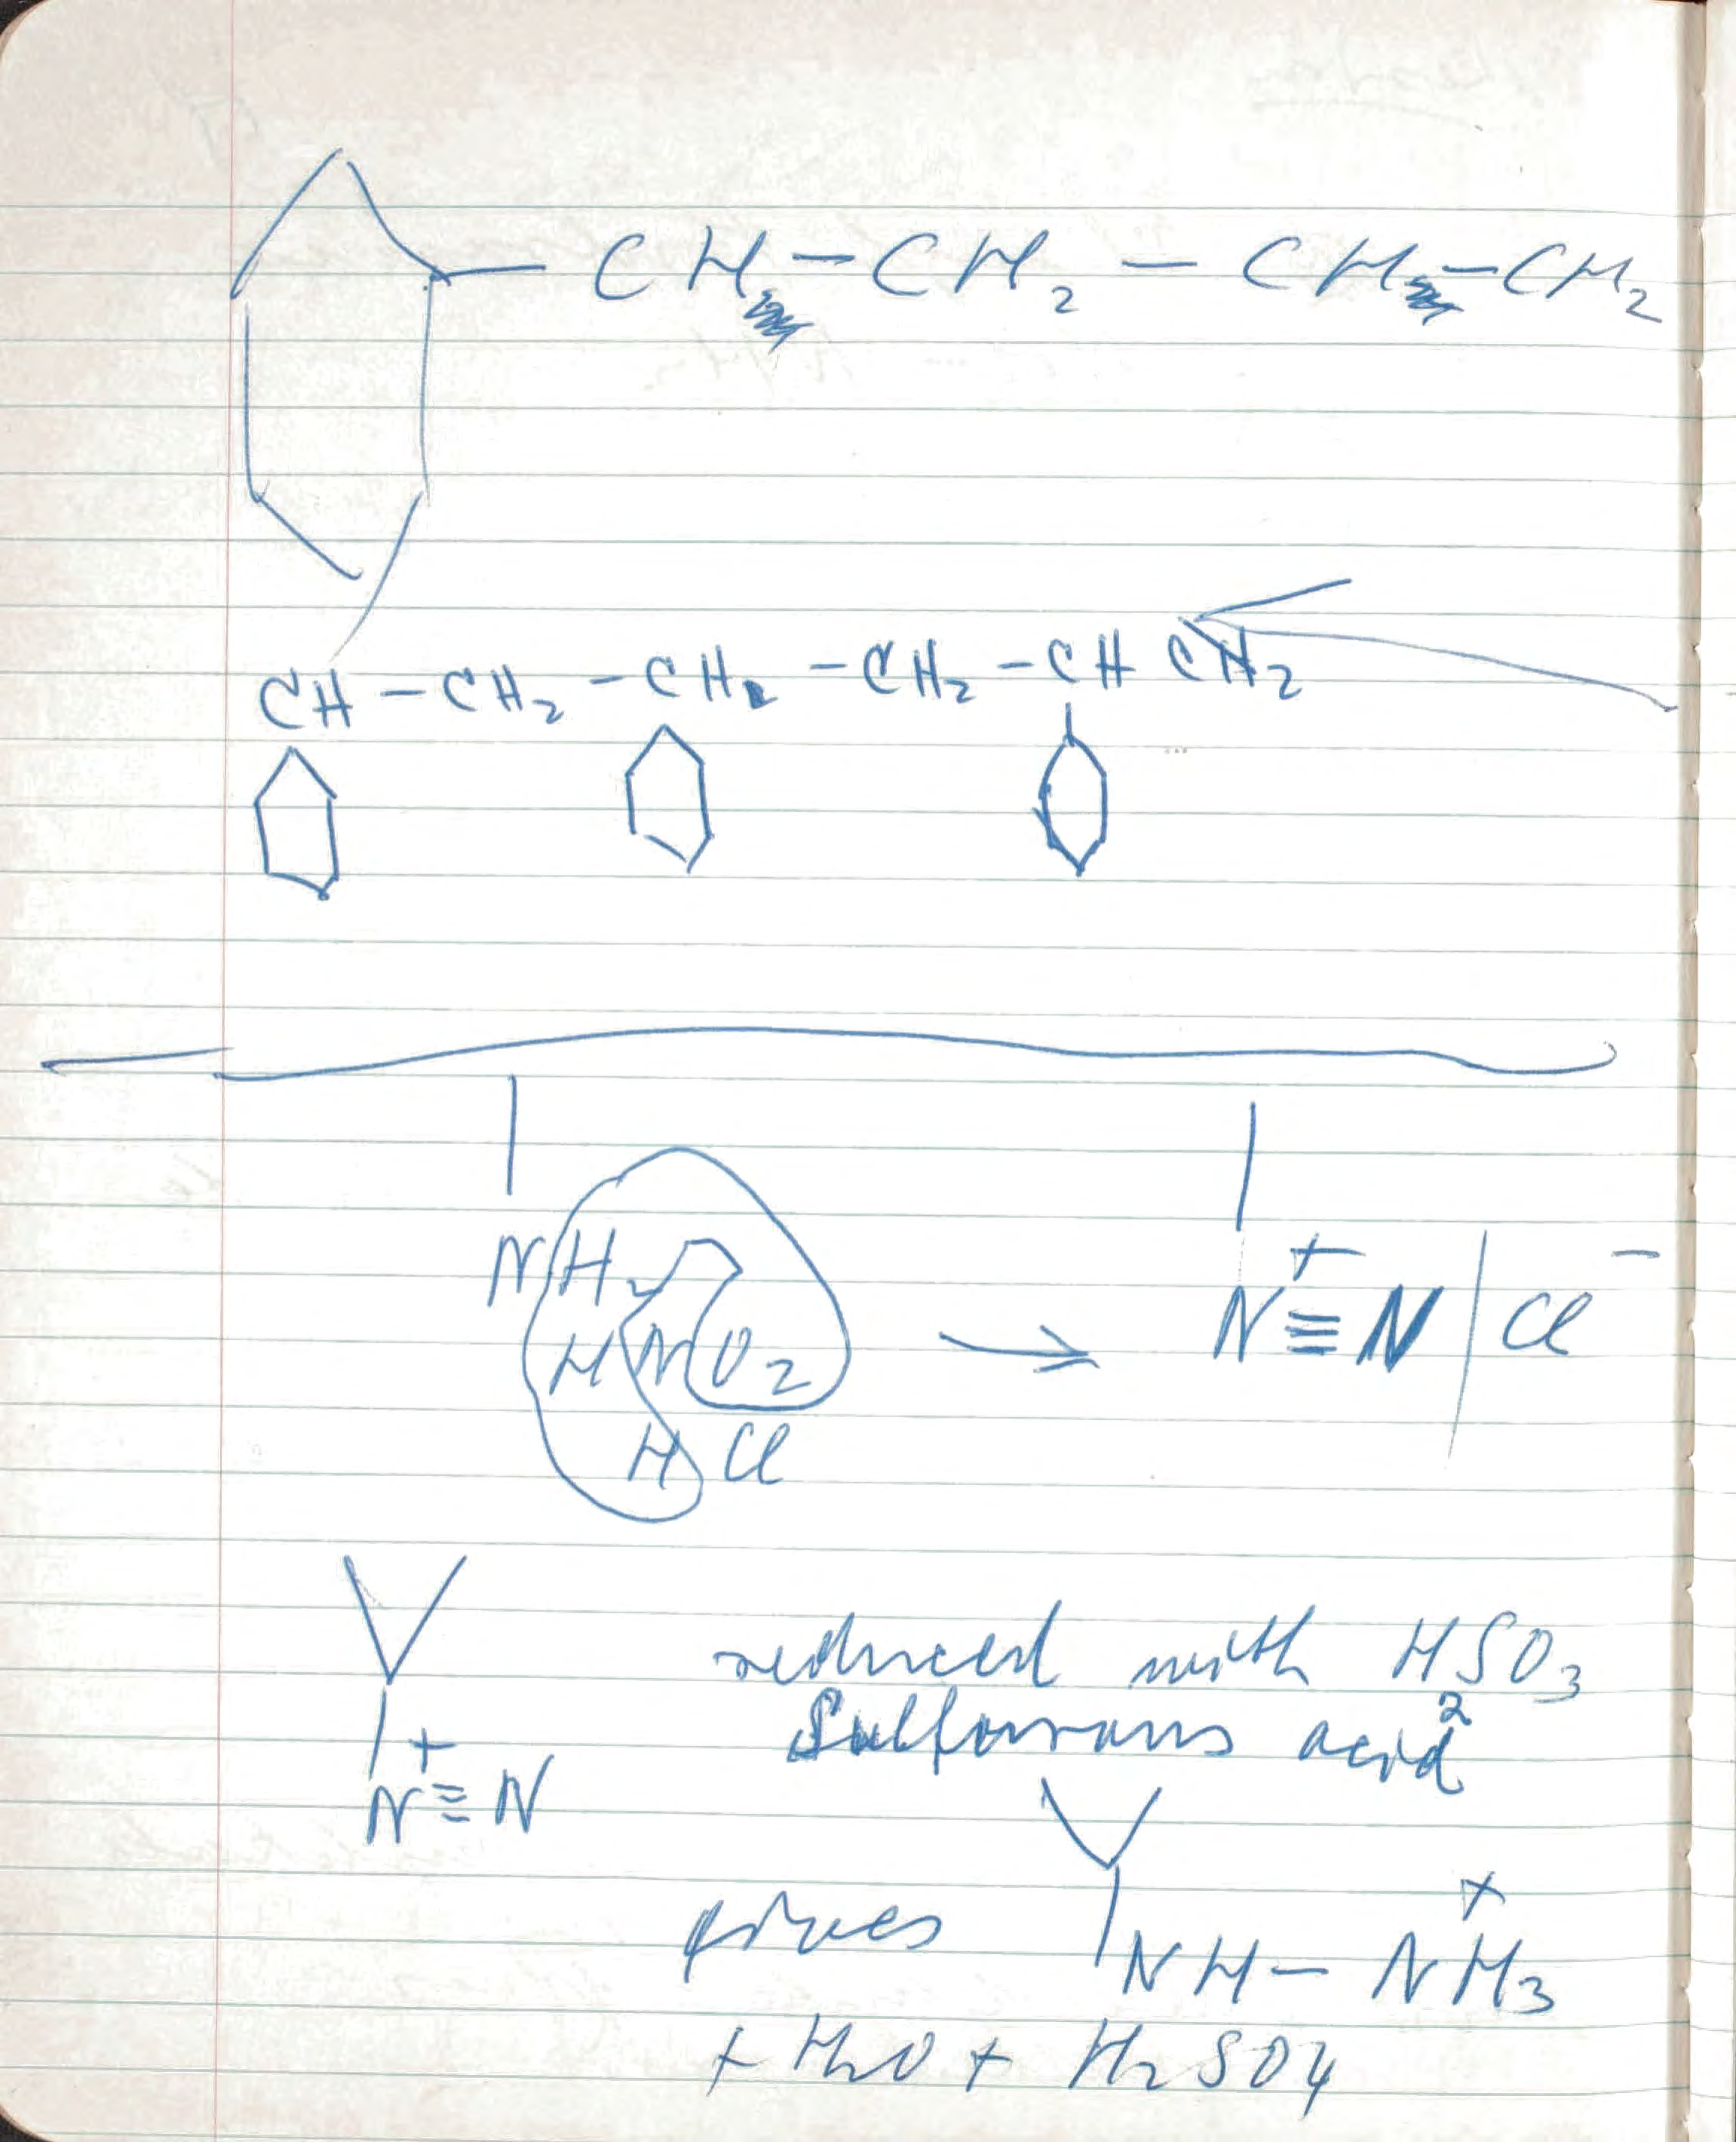 CH-CH2-CH-CH2
CH-CH2-CH-CH2-CH CH2
NH2
HNO2
HCl
+ -
N≡N|Cl
reduced with HSO3
Sulfurous acid 2
+
N≡N
gives NH-NH3 +
+ H2O + H2SO4